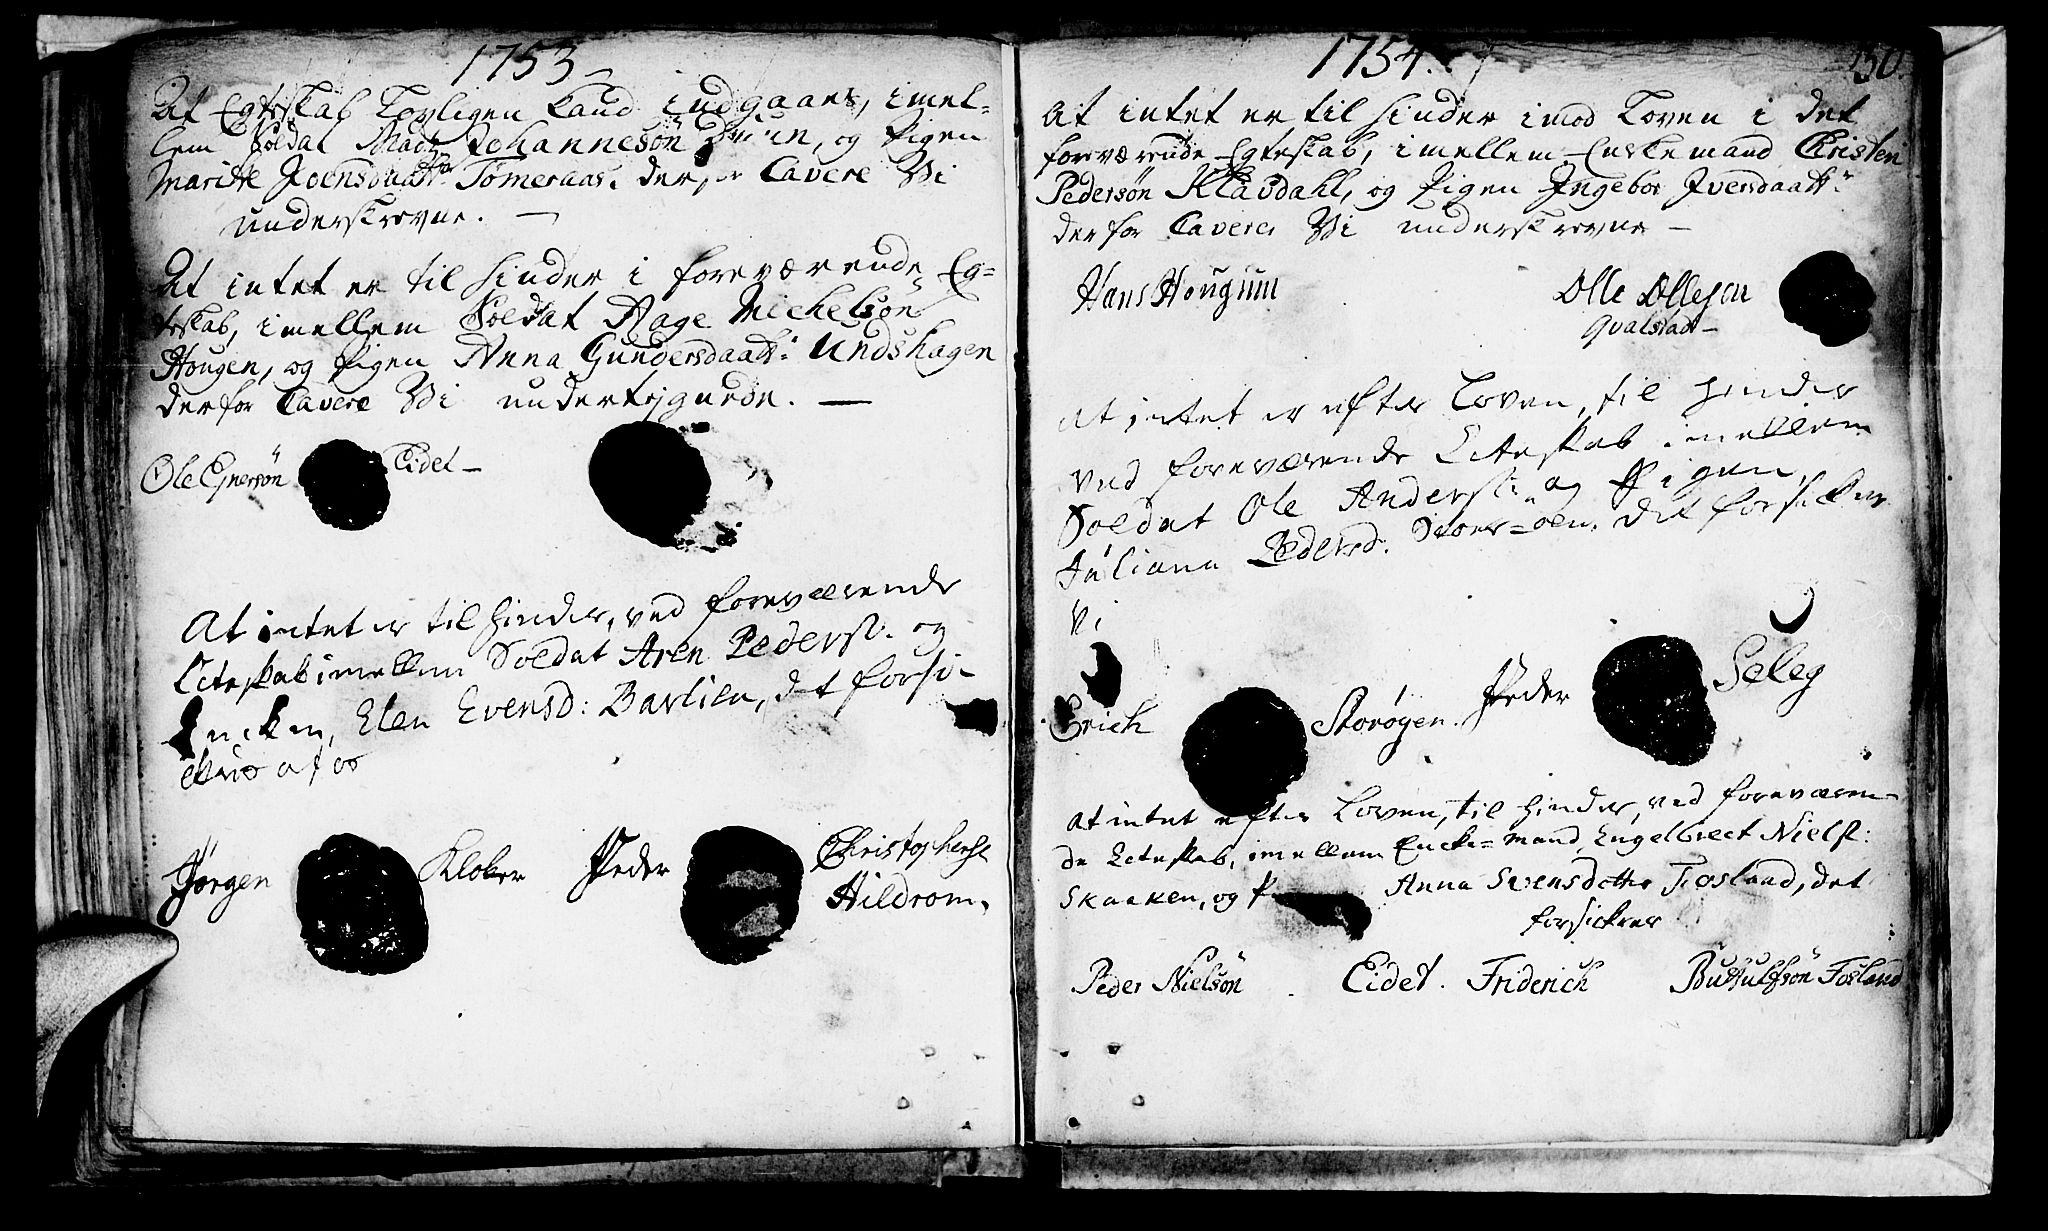 1753
At Egteskab Lovligen kand indgaaes, imel-
lem Soldat Mads Johannesøn og Pigen
Maritte Joensdaatter Tømeraas. derfor Cavere Vi
underskrevne. —
At intet er til hinder i foreværende Eg=
teskab, imellem Soldat Aage Michelsøn
Hougen, og Pigen Anna Gundersdaatt: Undshagen
derfor Cavere Vi undertegnede. —
Ole Ejnersøn Eidet —
At intet er til hinder, ved foreværende
Ecteskab imellem Soldat Aren Peders. og
Encken, Elen Evensd: Bavlien, det forsi-
ckres af os
Jørgen Klober Peder Christophers.
Hildrom.
1754.
150.
At intet er til hinder imod Loven i det
foreværende Egteskab, imellem Enkemand Christen
Pedersøn Klavdahl, og Pigen Ingebor Iversdaatt:
derfor Cavere Vi underskrevne —
Hans Hougum Olle Ollesen
Qvalstad —
At intet er efter Loven, til hinder
ved foreværende Ecteskab imellem
Soldat Ole Anders: og Pigen,
Juliana Pedersd: Stor=øen. det forsickrer
Vi
Erich Storøgen. Peder Seleg
At intet efter Loven, til hinder, ved foreværen-
de Ecteskab, imellem Encke=mand, Engelbrect Niels:
Skaaken, og Anna Svensdatter Fosland, det
forsickrer
Peder Nielsøn Eidet. Friderich Buttulfsøn Fosland